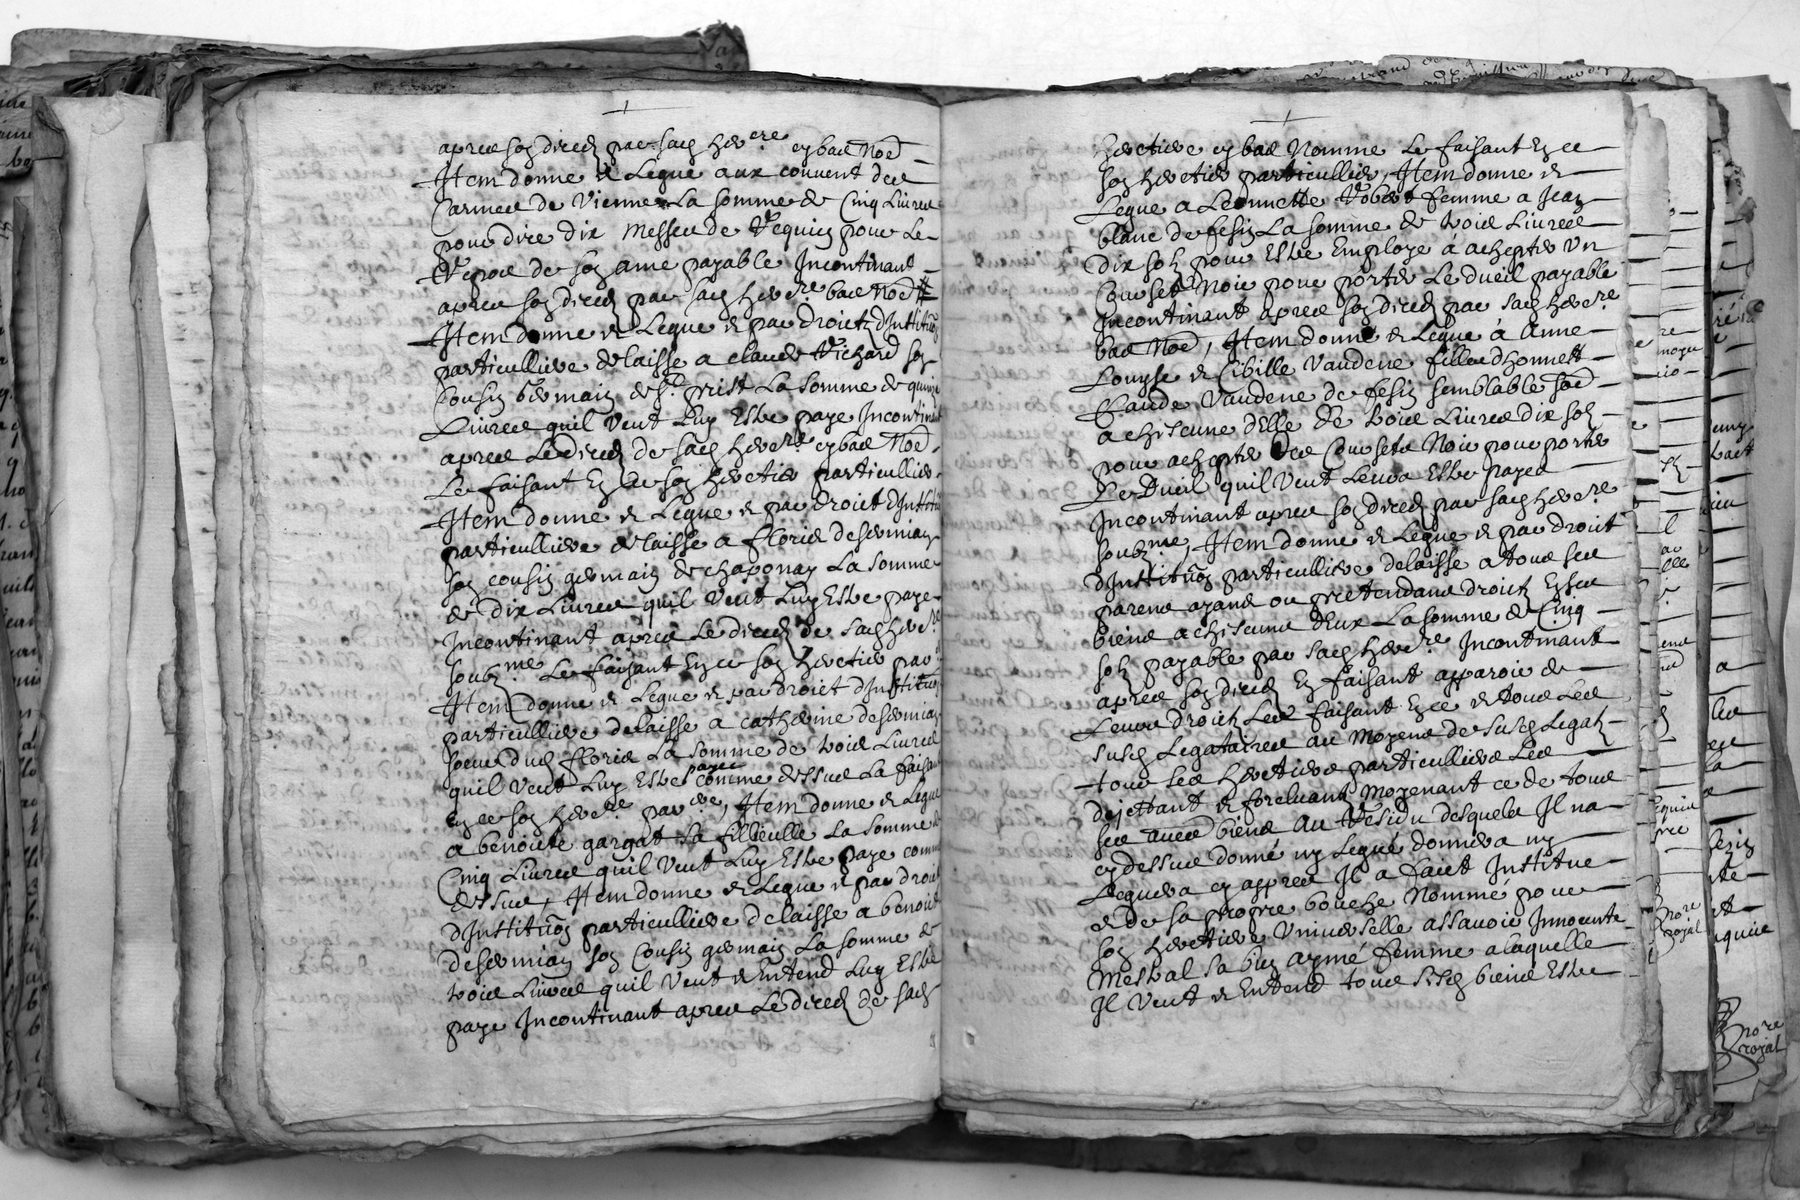 apres son deces par sad here cy bas Noe
Item donne & legue aux couvent des
Carmes de Vienne La somme de Cinq Livres
pour dire dix Messes de Requien pour Le
Repos de son ame payable Incontinand
apres son deces par sad here bas Noe
Item donne & Legue & par droict d Instituon
particulliere delaisse a claude Richard son
Cousin germain de St prist La somme de quinze
Livres quil Veut Luy Estre paye Incontinant
apres Le deces de sad here cy bas Noe
Le faisant En ce son heretier particullier
Item donne & Legue & par droict d Instituon
particulliere delaisse a floris desermian
son cousin germain de chaponay La somme
de dix Livres quil Veut Luy Estre paye
Incontinant apres Le deces de sad here
soubzme Le faisant En ce son heretier par
Item donne & Legue & par droict d Instituon
particulliere delaisse a catherine desermian
soeur dud floris La somme de trois Livres
quil Veut Luy Estre payee comme dessus La faisant
En ce son here parre, Item donne & Legue
a benoite gargat sa fillieulle La somme de
Cinq Livres quil Veut Luy Estre paye comme
dessus, Item donne & Legue & par droict
d Instituon particulliere delaisse a benoit
desermian son Cousin germain La somme de
trois Livres quil Veut & Entend Luy Estre
paye Incontinant apres Le deces de sad
heretiere cy bas Nomme Le faisant En ce
son heretier particullier, Item donne &
Legue a Leonnette Robert femme a Jean
blanc de fesin La somme de trois Livres
dix solz pour Estre Employe a achepter Un
Couset Noir pour porter Le dueil payable
Incontinant apres son deces par sad here
bas Noe, Item donne & Legue à Anne
Louyse & Cibille Vaudene filles d honneste
Claude Vaudene de fesin semblable soe
a chiscune d Elle de trois Livres dix solz
pour achepter des Cousets Noir pour porter
Le Dueil quil Veut Leurs Estre payes
Incontinant apres son deces par sad here
soubzme, Item donne & Legue & par droict
d Instituon particulliere delaisse a tous ses
parens ayans ou pretendans droict En ses
biens a chiscung d Eux La somme de Cinq
solz payable par sad here Incontinant
apres son deces En faisant apparoir de
Leurs droictz Les faisant En ce & tous Les
susd Legataires au Moyens de susd Legatz
tous ses heretiers particulliers Les
dejettant & forcluant Moyenant ce de tous
ses autre biens Au Residu desquels Il na
cy dessus donné ny Legué donnera ny
Leguera cy appres Il a faict Institue
& de sa propre bouche Nommé pour
son heretiere Universelle assavoir Innocente
Mestral sa bien aymé femme a laquelle
Il Veut & Entend tous sesd biens Estre
nore
royal
nore
royal